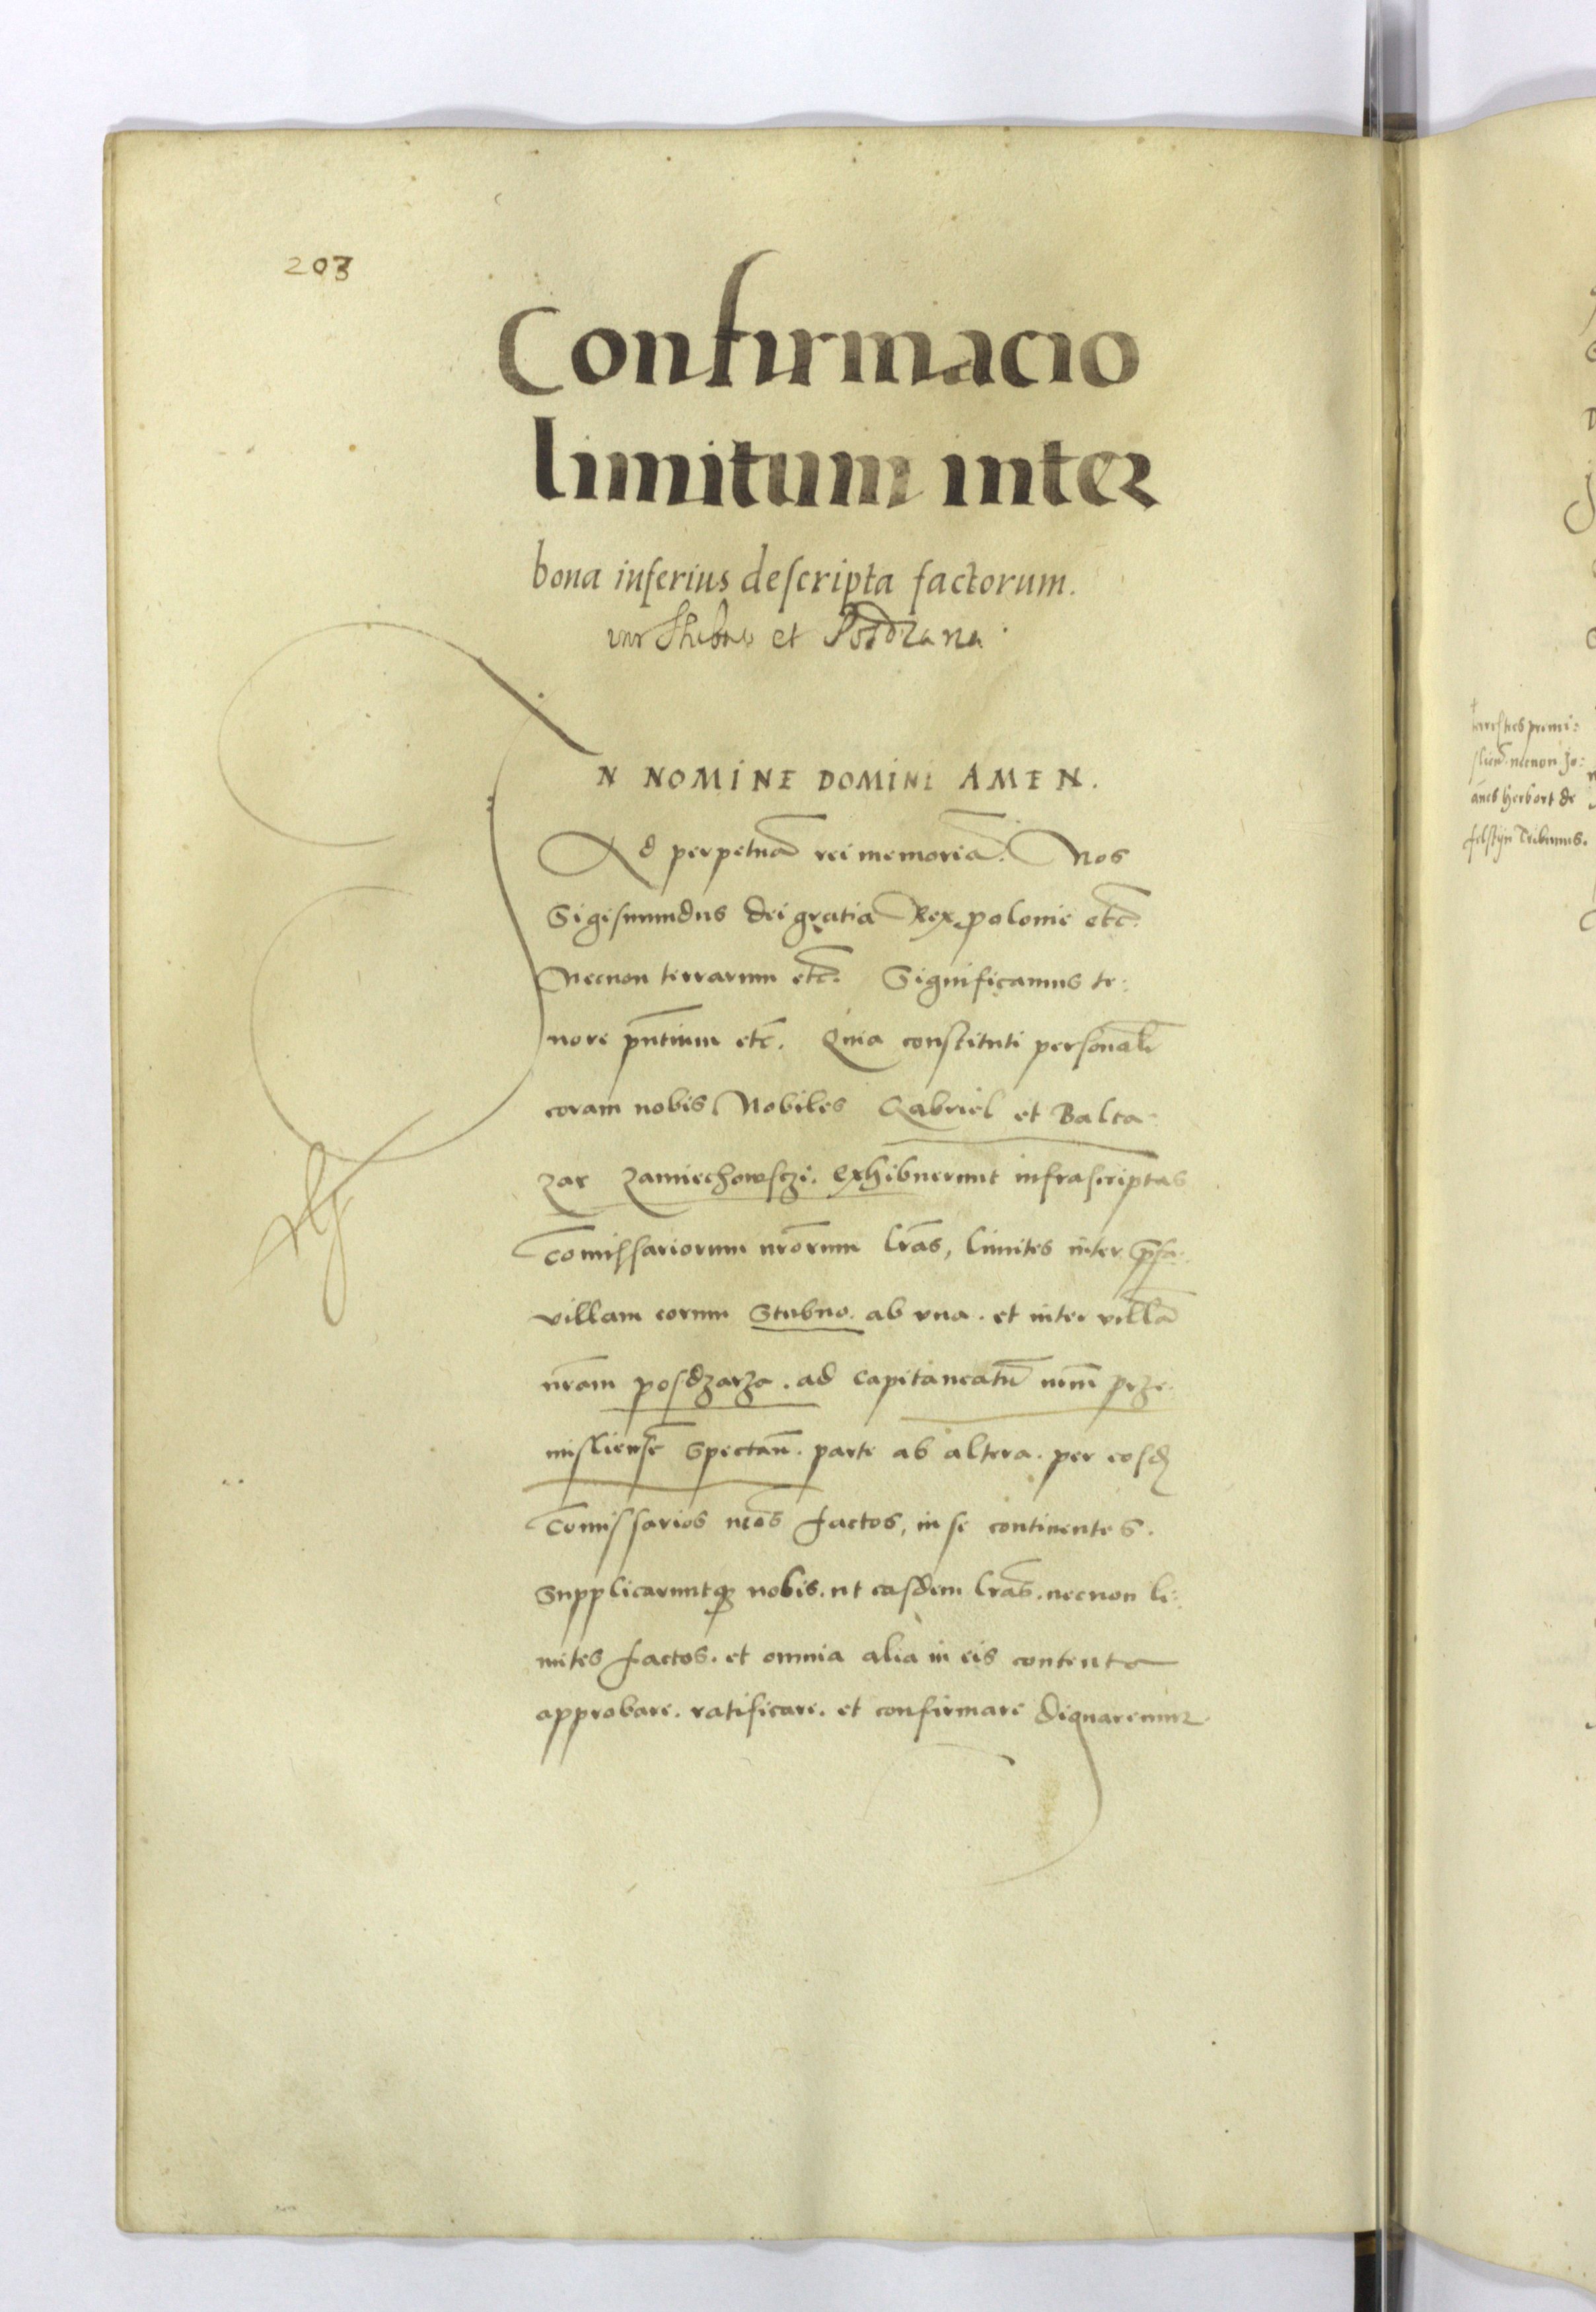 203
Confirmacio
limitum inter
bona inferius descripta factorum.
et
N NOMINE DOMINI AMEN.
Ad perpetuā rei memoriā. Nos
Sigismundus dei gratia Rex polonie etc̄.
Necnon terrarum etc̄. Significamus te:
nore pn̄tium etc̄. Quia constituti personal̄r
coram nobis Nobiles Gabriel et Balta-
zar Zamiechowsczi. exhibuerunt infrascriptas
Com̄issariorum nr̄orum lr̄as, limites inter
villam eorum Stubno. ab vna. et inter villā
nr̄am posdzarza. ad Capitaneatū nrm̄ prze-
misliensē Spectan̄. parte ab altera. per eosd
Com̄issarios nr̄os factos, in se continentes.
Supplicaruntq nobis. ut easdem lr̄as. necnon li:
mites factos. et omnia alia in eis contenta
approbare. ratificare. et confirmare dignaremur
terrestres premi:
slien̄. necnon Jo:
anes herbort de
felstyn Tribunus.